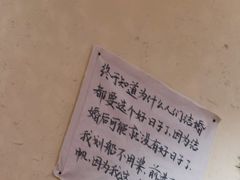 终于知道为什么人们结婚
都要选个好日子了,因为结
婚后可能就没有好日子了,
我划都不用
帆,因为我